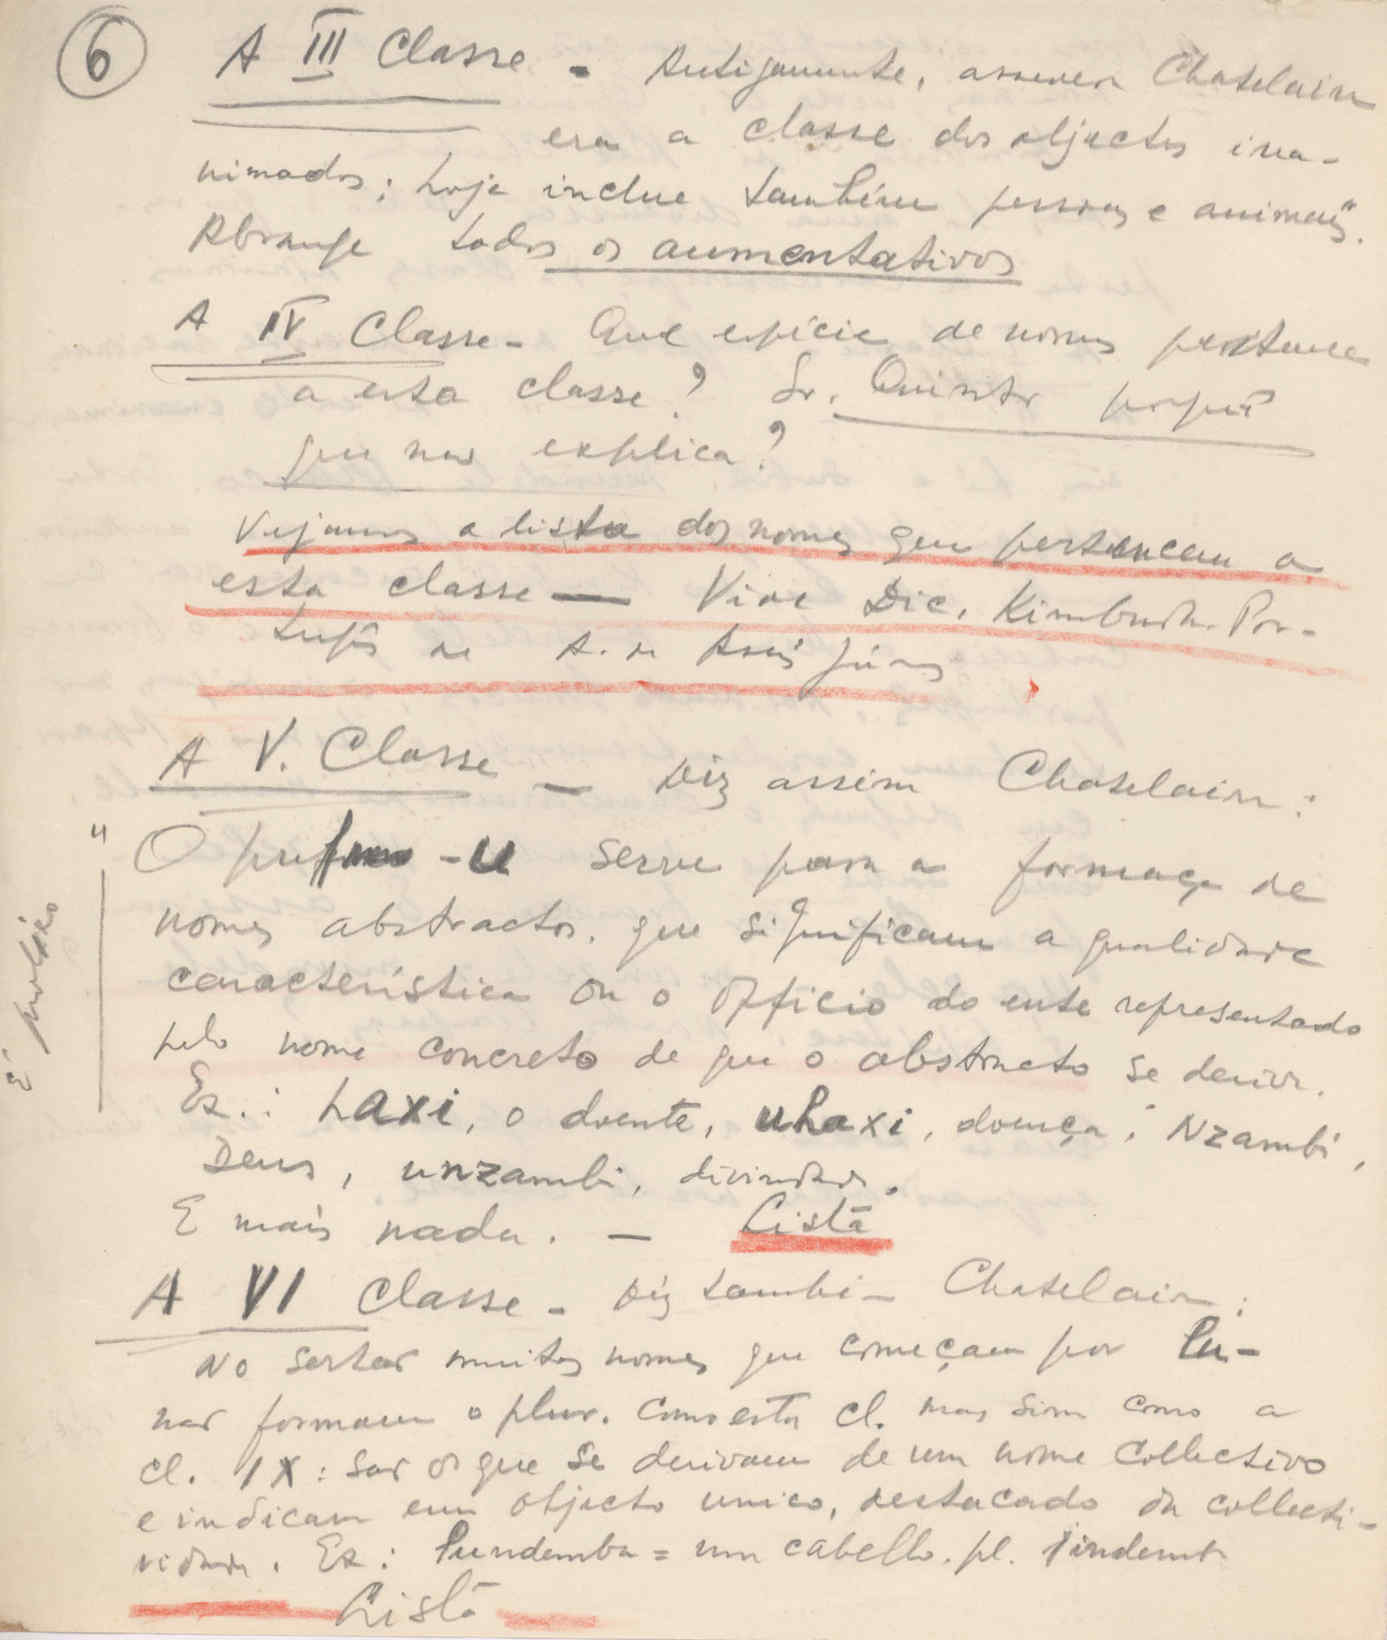 6
A III Classe - Antigamente, assevera Chatelain
era a classe dos objectos ina-
nimados; hoje inclue também pessoas e animais".
Abrange todos os aumentativos
A IV Classe - Que espécie de nomes pertence
a esta classe? Sr. Quinto porquê
que não explica?
Vejamos a lista dos nomes que pertencem a
esta classe — Vide Dic. Kimbundu-Por-
tuguês de A. de Assis Júnior
A V. Classe — Diz assim Chatelain:
"O prefixo -u serve para a formação de
nomes abstractos. que significam a qualidade
característica ou o officio do ente representado
pelo nome concreto de que o abstracto se deriva.
Ex.: haxi, o doente, uhaxi, doença; Nzambi,
Deus, unzambi, divindade.
E mais nada. — Lista
A VI Classe - Diz também Chatelain:
No sertão muitos nomes que começam por lu-
não formam o plur. como esta cl. mas sim como a
cl. IX: são os que se derivam de um nome collectivo
e indicam um objecto unico, destacado da collecti-
vidade. Ex.: lundemba = um cabello. pl. jindemba
Lista